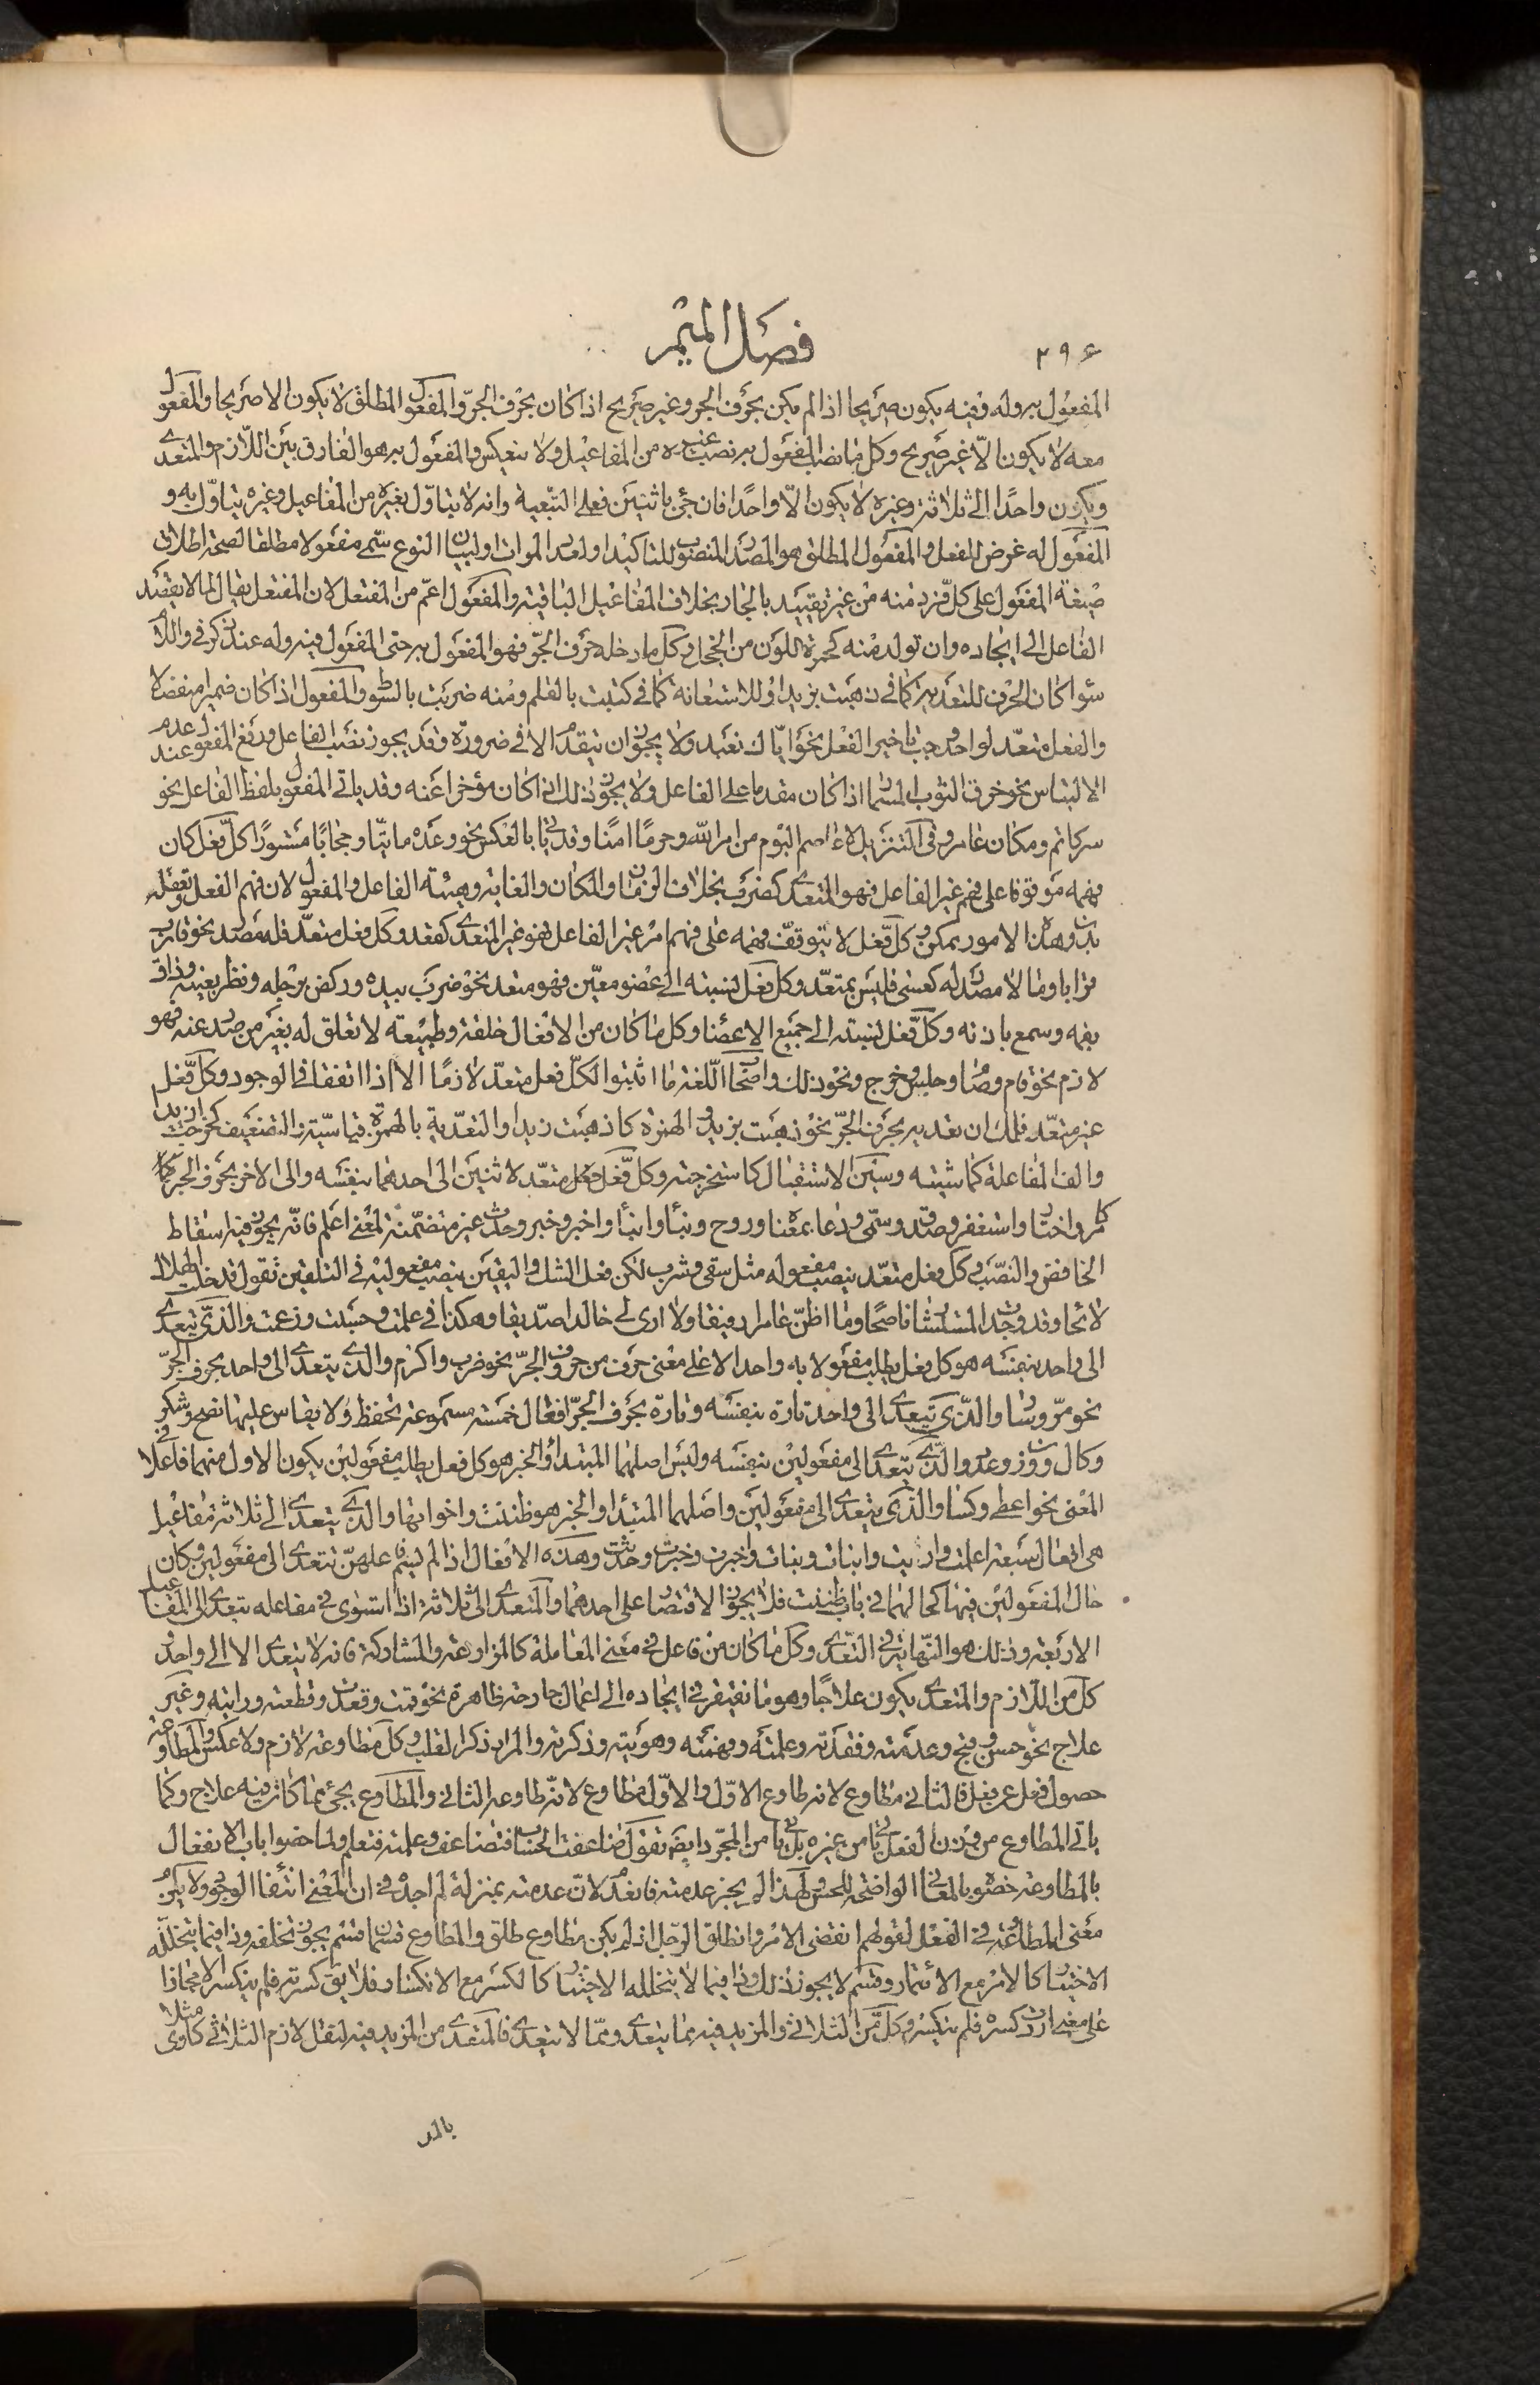 ٢٩۶
فصل الميم
المفعول به وله وفيه يكون صريحا اذا لم يكن بحرف الجر وغير صريح اذا كان بحرف الجرّ والمفعول المطلق لا يكون الا صريحا والمفعول
معه لا يكون الّا غير صريح وكل ما نصب المفعول به نصب غيره من المفاعيل ولا ينعكس والمفعول به هو الفارق بين اللّازم والمتعدى
ويكون واحدًا الى ثلاثة وغيره لا يكون الّا واحدًا فان جئ باثنين فعلى التبعية وانه لا يتأوّل بغيره من المفاعيل وغيره يتأوّل به و
المفعول له غرض للفعل والمفعول المطلق هو المصدر المنصوب للتاكيد او لعدد المرات او لبيان النوع سمّى مفعولا مطلقا لصحة اطلاق
صيغة المفعول على كل فرد منه من غير تقييد بالجار بخلاف المفاعيل الباقية والمفعول اعمّ من المنفعل لان المنفعل يقال لما لا يقصد
الفاعل الى ايجاده وان تولد منه كحمرة اللون من الخجل وكل ما دخله حرف الجرّ فهو المفعول به حتى المفعول فيه وله عند ذكر فى واللام
سوا كان الحرف للتعدية كما فى ذهبت بزيد او للاستعانة كما فى كتبت بالقلم ومنه ضربت بالسوط والمفعول اذا كان ضميرا منفصلا
والفعل متعدّ لواحد وجب تاخير الفعل نحو ايّاك نعبد ولا يجوز ان يتقدم الا فى ضرورة وقد يجوز نصب الفاعل ورفع المفعول عند عدم
الالتباس نحو خرق الثوب المسمار اذا كان مقدما على الفاعل ولا يجوز ذلك اذا كان مؤخرا عنه وقد ياتى المفعول بلفظ الفاعل نحو
سر كاتم ومكان عامر وفى التنزيل لا عاصم اليوم من امر الله وحرمًا امنًا وقد ياتى بالعكس نحو وعده ماتيّا وحجابًا مستورًا كلّ فعل كان
فهمه موقوفا على فهم غير الفاعل فهو المتعدى كضرب بخلاف الزمان والمكان والغاية وهيئة الفاعل والمفعول لان فهم الفعل وتعقله
بدون هذه الامور ممكن وكل فعل لا يتوقف فهمه على فهم امر غير الفاعل فهو غير المتعدى كقعد وكل فعل متعدّ فله مصدر نحو قارب
قرابا وما لا مصدر له كعسى فليس بمتعدّ وكل فعل نسبته الى عضو معيّن فهو متعد نحو ضرب بيده وركض برجله ونظر بعينه وذاق
بفمه وسمع باذنه وكلّ فعل نسبته الى جميع الاعضا وكل ما كان من الافعال خلقة وطبيعة لا تعلق له بغير من صدر عنه فهو
لازم نحو قام وصام وجلس وخرج ونحو ذلك واصحاب اللّغة ما اثبتوا لكلّ فعل متعدّ لازمًا الا اذا اتفقا فى الوجود وكلّ فعل
غير متعدّ فلك ان تعديه بحرف الجرّ نحو ذهبت بزيد والهمزة كاذهبت زيدا والتعدية بالهمزة قياسيّة والتضعيف كخرّجت زيدا
والف المفاعلة كماشيته وسين الاستقبال كاستخرجته وكل فعل متعدّ لاثنين الى احدهما بنفسه والى الاخر بحرف الجر
كامر واختار واستغفر وصدق وسمّى ودعا بمعناه وروح ونبأ وانبأ واخبر وخبر وحدث غير متضمّنة لمعنى اعلم فانّه يجوز فيه اسقاط
الخافض والنصب وكل فعل متعدّ ينصب مفعوله مثل سقى وشرب لكن فعل الشك واليقين ينصب مفعوليه فى التلقين تقول قد خلت الهلال
لائحا وقد وجدت المستشار ناصحًا وما اظنّ عامرا رفيقا ولا ارى لى خالدا صدّيقا وهكذا فى علمت وحسبت وزعمت والذى يتعدى
الى واحد بنفسه هو كل فعل يطلب مفعولا به واحدا لا على معنى حرف من حروف الجرّ نحو ضرب واكرم والذى يتعدى الى واحد بحرف الجرّ
نحو مرّ وسار والذى يتعدى الى واحد تارة بنفسه وتارة بحرف الجرّ افعال خمسة مسموعة تحفظ ولا يقاس عليها نصح وشكر
وكال ووزن وعد والذى يتعدى الى مفعولين بنفسه وليس اصلهما المبتدأ والخبر هو كل فعل يطلب مفعولين يكون الاول منهما فاعلا فى
المعنى نحو اعطى وكسا والذى يتعدى الى مفعولين واصلهما المبتدا والخبر هو ظننت واخواتها والذى يتعدى الى ثلاثة مفاعيل
هى افعال سبعة اعلمت واريت وانبات ونبات واخبرت وخبرت وحدثت وهذه الافعال اذا لم يسمّ فاعلهنّ تتعدى الى مفعولين وكان
حال المفعولين فيها كحالهما فى باب ظننت فلا يجوز الاقتصار على احدهما والمتعدى الى ثلاثة اذا استوفى مفاعله يتعدى الى المفاعيل
الاربعة وذلك هو النّهاية فى التعدّى وكل ما كان من فاعل فى معنى المعاملة كالمزارعة والمشاركة فانه لا يتعدا الا الى واحد و
كل من اللّازم والمتعدى يكون علاجًا وهو ما يفتقر فى ايجاده الى اعمال جارحة ظاهرة نحو قمت وقعدت وقطعته ورايته وغير
علاج نحو حسن وقبح وعدمته وفقدته وعلمته وفهمته وهويته وذكرته والمراد ذكر القلب وكل مطاوعة لازم ولا عكس والمطاوعة
حصول فعل عن فعل فالثانى مطاوع لانه طاوع الاوّل والاوّل مطاوع لانّه طاوعه الثانى والمطاوع يجئ مما كان فيه علاج وكما
ياتى المطاوع من وزن الفعل ياتى من غيره بل ياتى من المجرّد ايضا تقول ضاعفت الحساب فتضاعف وعلمته فتعلم ولما خصوا باب الانفعال
بالمطاوعة خصوه بالمعانى الواضحة للحس ولهذا لم يجز عدمته فانعدم لانّ عدمته بمنزلة لم اجده فى ان المعنى انتفا الوجود ولا يكون
معنى المطاوعة فى الفعل لقولهم انقضى الامر وانطلق الرّجل اذ لم يكن مطاوع طلق والمطاوع قسمان قسم يجوز تخلفه وذا فيما يتخلله
الاختيار كالامر مع الائتمار وقسم لا يجوز ذلك وذا فيما لا يتخلله الاختيار كالكسر مع الانكسار فلا يق كسرته فلم ينكسر الا مجازا
على معنى اردت كسره فلم ينكسر وكل من الثلاثى والمزيد فيه مما يتعدى ومما لا يتعدى فالمتعدى من المزيد فيه لنقل لازم الثلاثى كآوى مثلا
بالمد